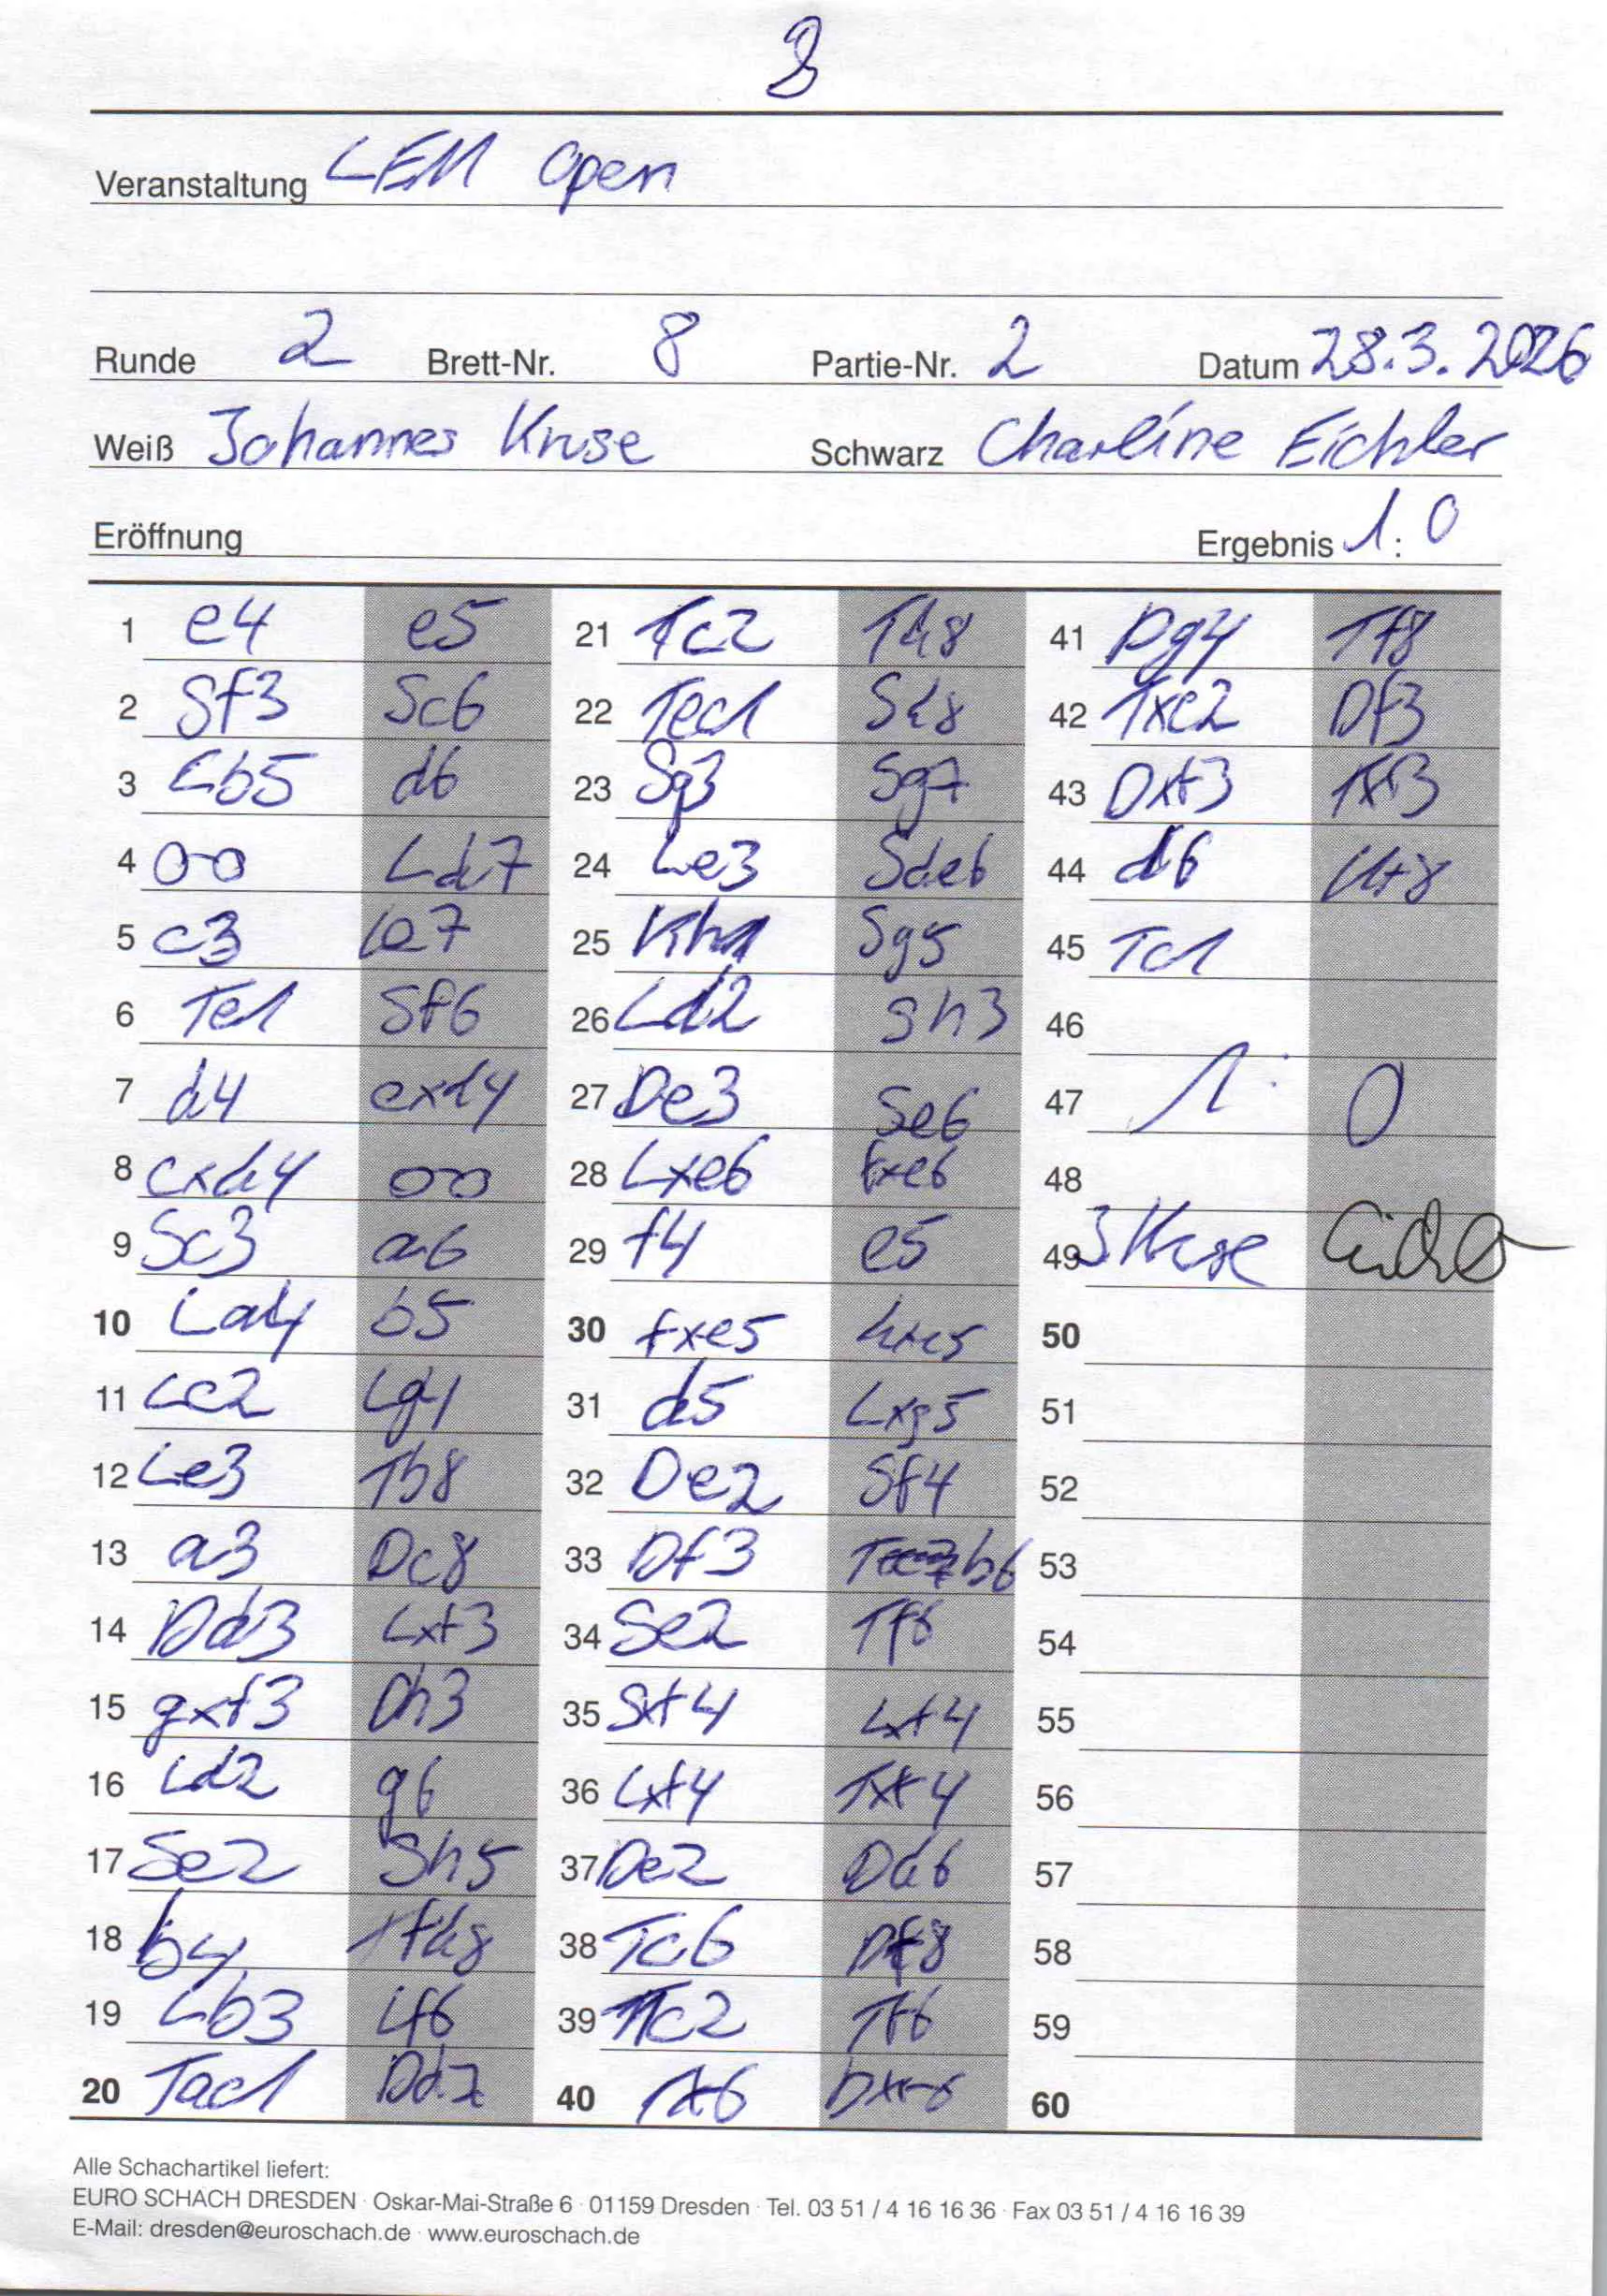 8
Veranstaltung LEM Open
Runde 2 Brett-Nr. 8 Partie-Nr. 2 Datum 28.3.2026
Weiß Johannes Kruse Schwarz Charline Eichler
Eröffnung Ergebnis 1 : 0
1 e4 e5 21 Tc2 Td8 41 Dg4 Tf8
2 Sf3 Sc6 22 Tec1 Sd8 42 Txc2 Df3
3 Lb5 d6 23 Sg3 Sg7 43 Dxf3 Txf3
4 00 Ld7 24 Le3 Sde6 44 d6 Kf8
5 c3 Le7 25 Kh1 Sg5 45 Tc1
6 Te1 Sf6 26 Ld2 Sh3 46
7 d4 exd4 27 De3 Se6 47 1 : 0
8 cxd4 00 28 Lxe6 fxe6 48
9 Sc3 a6 29 f4 e5 49 J Kruse
10 La4 b5 30 fxe5 50
11 Lc2 Lg4 31 d5 Lxg5 51
12 Le3 Tb8 32 De2 Sf4 52
13 a3 Dc8 33 Df3 b6 53
14 Dd3 Lxf3 34 Se2 Tf6 54
15 gxf3 Dh3 35 Sxf4 Lxf4 55
16 Ld2 g6 36 Lxf4 Txf4 56
17 Se2 Sh5 37 De2 Dd6 57
18 b4 Tfd8 38 Tc6 Df8 58
19 Lb3 Lf6 39 Tc2 Tf6 59
20 Tac1 Dd7 40 60
Alle Schachartikel liefert:
EURO SCHACH DRESDEN · Oskar-Mai-Straße 6 · 01159 Dresden · Tel. 03 51 / 4 16 16 36 · Fax 03 51 / 4 16 16 39
E-Mail: dresden@euroschach.de · www.euroschach.de